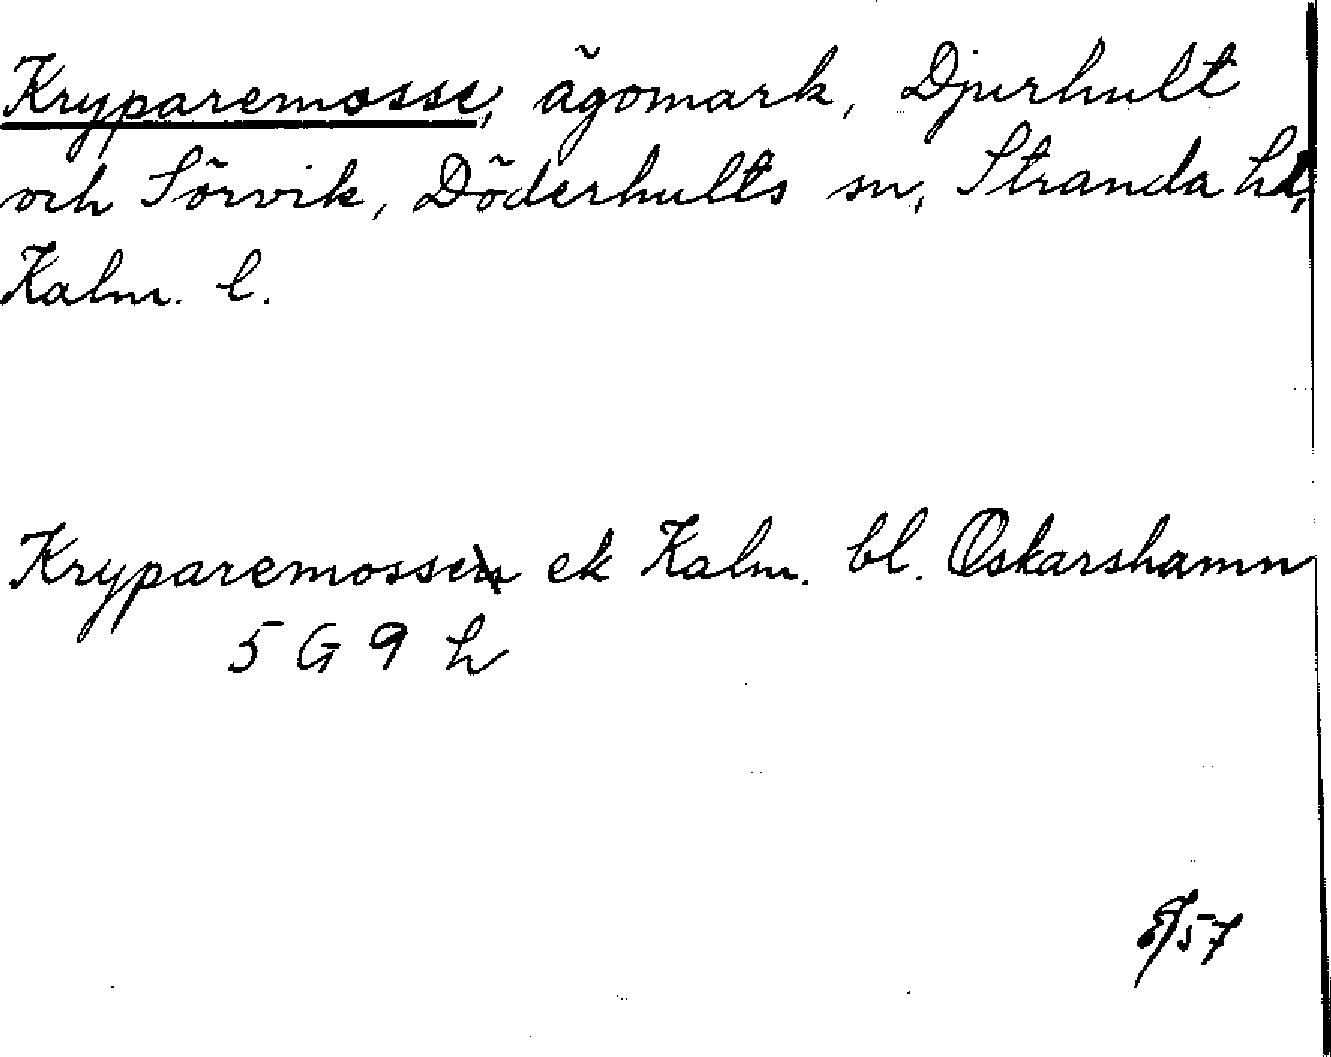 Kryparemosse, ägomark, Djurhult
och Sörvik, Döderhults sn, Stranda hd,
Kalm. l.
Kryparemosse ek Kalm. bl. Oskarshamn
5 G 9 h
57